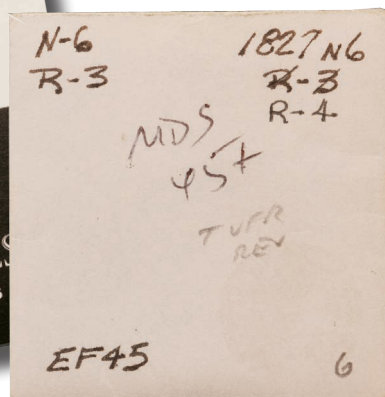 N-6
R-3
1827 N6
R-3
R-4
MDS
45+
REV
EF45
6